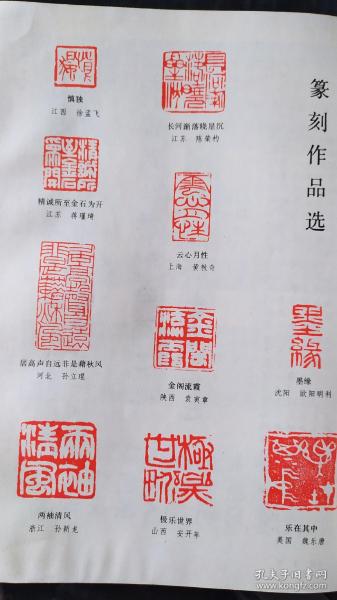 篆刻作品选
慎独
江西 徐孟飞
长河渐落晓星沉
江苏 陈荣杓
精诚所至金石为开
江苏 蒋瑾琦
云心月性
上海 黄牧奇
居高声自远非是藉秋风
河北 孙立琨
金阁流霞
陕西 袁寅章
墨缘
沈阳 欧阳明利
两袖清风
浙江 孙新龙
极乐世界
山西 安开年
乐在其中
美国 魏乐唐
孔夫子旧书网